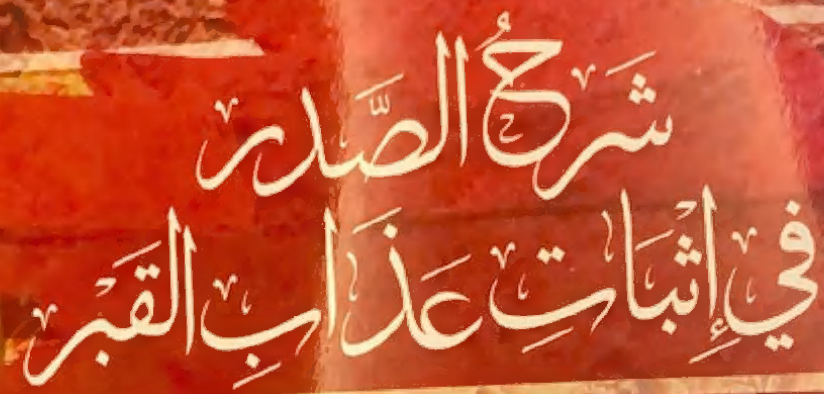 شَرحُ الصَّدر
في إِثْبَاتِ عَذَابِ القَبْر